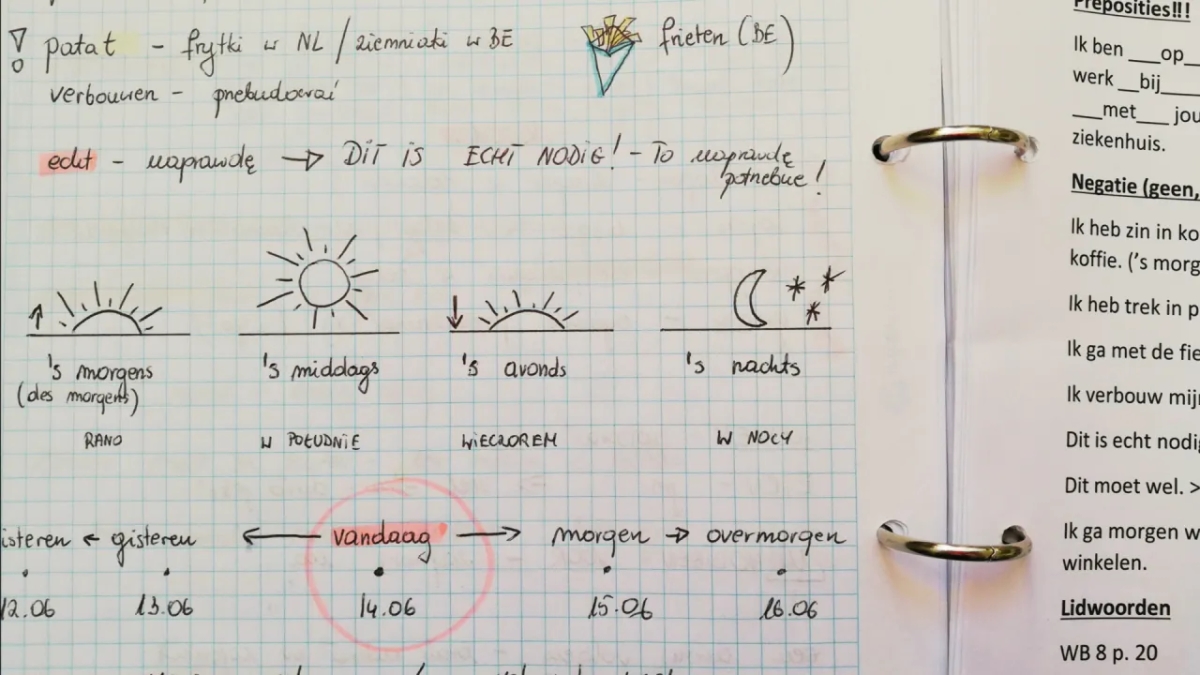 ! patat - frytki w NL / ziemniaki w BE
frieten (BE)
verbouwen - przebudować
echt - naprawdę → DIT IS ECHT NODIG! - To naprawdę
potrzebne!
's morgens 's middags 's avonds 's nachts
(des morgens)
RANO W POŁUDNIE WIECZOREM W NOCY
isteren ← gisteren ← vandaag → morgen → overmorgen
12.06 13.06 14.06 15.06 16.06
Preposities!!!
Ik ben ___op_
werk __bij____
___met___ jou
ziekenhuis.
Negatie (geen,
Ik heb zin in ko
koffie. ('s morg
Ik heb trek in p
Ik ga met de fie
Ik verbouw mij
Dit is echt nodig
Dit moet wel. >
Ik ga morgen w
winkelen.
Lidwoorden
WB 8 p. 20